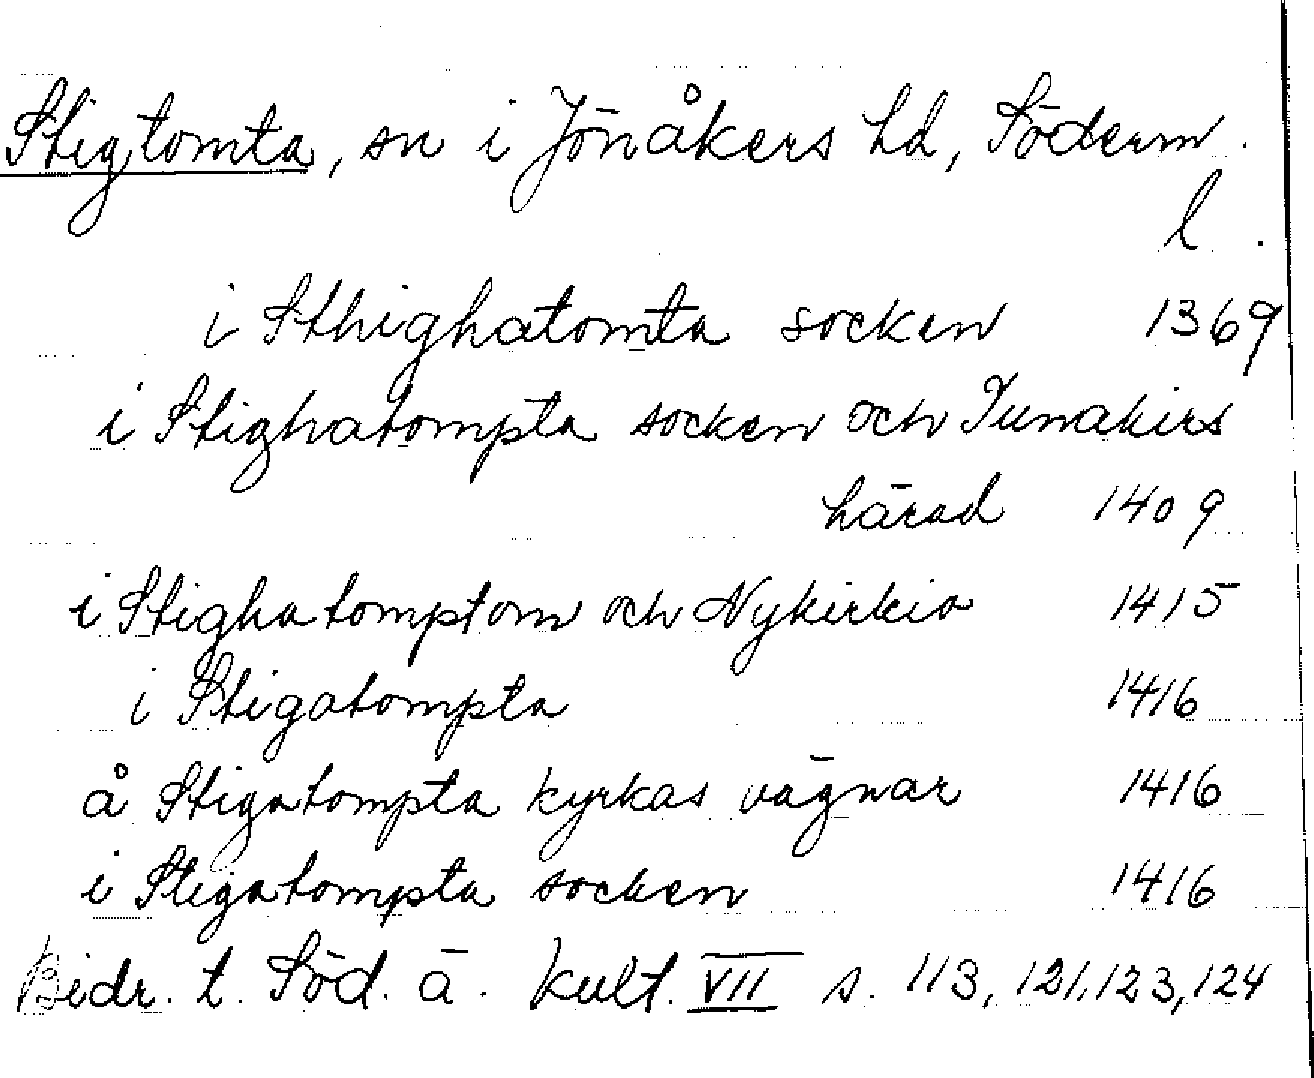 Stigtomta, sn i Jönåkers hd, Söderm.
l.
i Sthighatomta socken 1369
i Stighatompta socken och Iunakirs
härad 1409
i Stighatomptom och Nykirkio 1415
i Stigatompta 1416
å Stigatompta kyrkas vägnar 1416
i Stigatompta socken 1416
Bidr. t. Söd. ä. kult. VII s. 113, 121, 123, 124